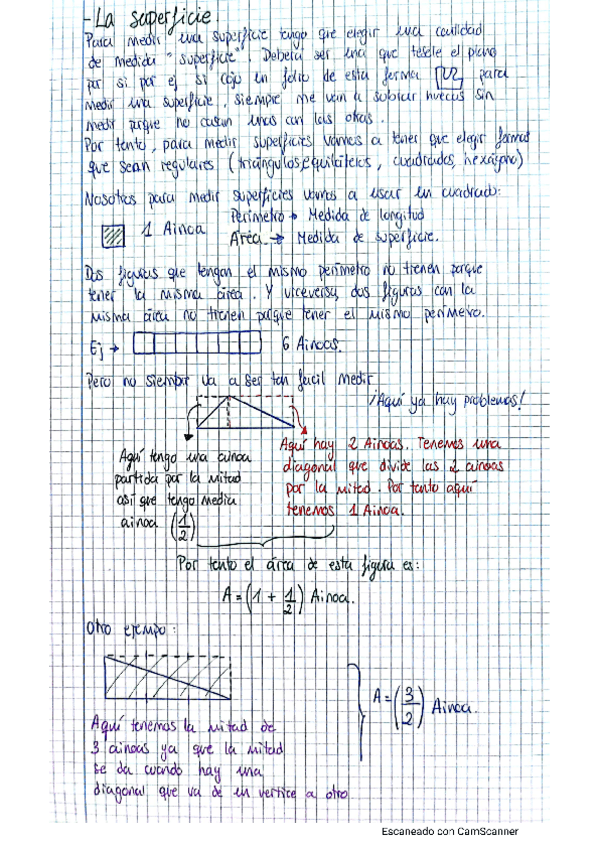 - La superficie.
Para medir una superficie tengo que elegir una cantidad
de medida "superficie". Deberá ser una que tesele el plano
por si por ej si cojo un folio de esta forma para
medir una superficie, siempre me van a sobrar huecos sin
medir porque no casan unas con las otras.
Por tanto, para medir superficies vamos a tener que elegir formas
que sean regulares (triángulos equiláteros, cuadrados, hexágono)
Nosotros para medir superficies vamos a usar un cuadrado:
1 Ainoa
Perímetro → Medida de longitud
Área → Medida de superficie.
Dos figuras que tengan el mismo perímetro no tienen porque
tener la misma área. Y viceversa, dos figuras con la
misma área no tienen porque tener el mismo perímetro.
Ej → 6 Ainoas.
Pero no siempre va a ser tan fácil medir
¡Aquí ya hay problemas!
Aquí tengo una ainoa
partida por la mitad
así que tengo media
ainoa (1/2)
Aquí hay 2 Ainoas. Tenemos una
diagonal que divide las 2 ainoas
por la mitad. Por tanto aquí
tenemos 1 Ainoa.
Por tanto el área de esta figura es:
A = (1 + 1/2) Ainoa.
Otro ejemplo:
Aquí tenemos la mitad de
3 ainoas ya que la mitad
se da cuando hay una
diagonal que va de un vertice a otro
A = (3/2) Ainoa.
Escaneado con CamScanner